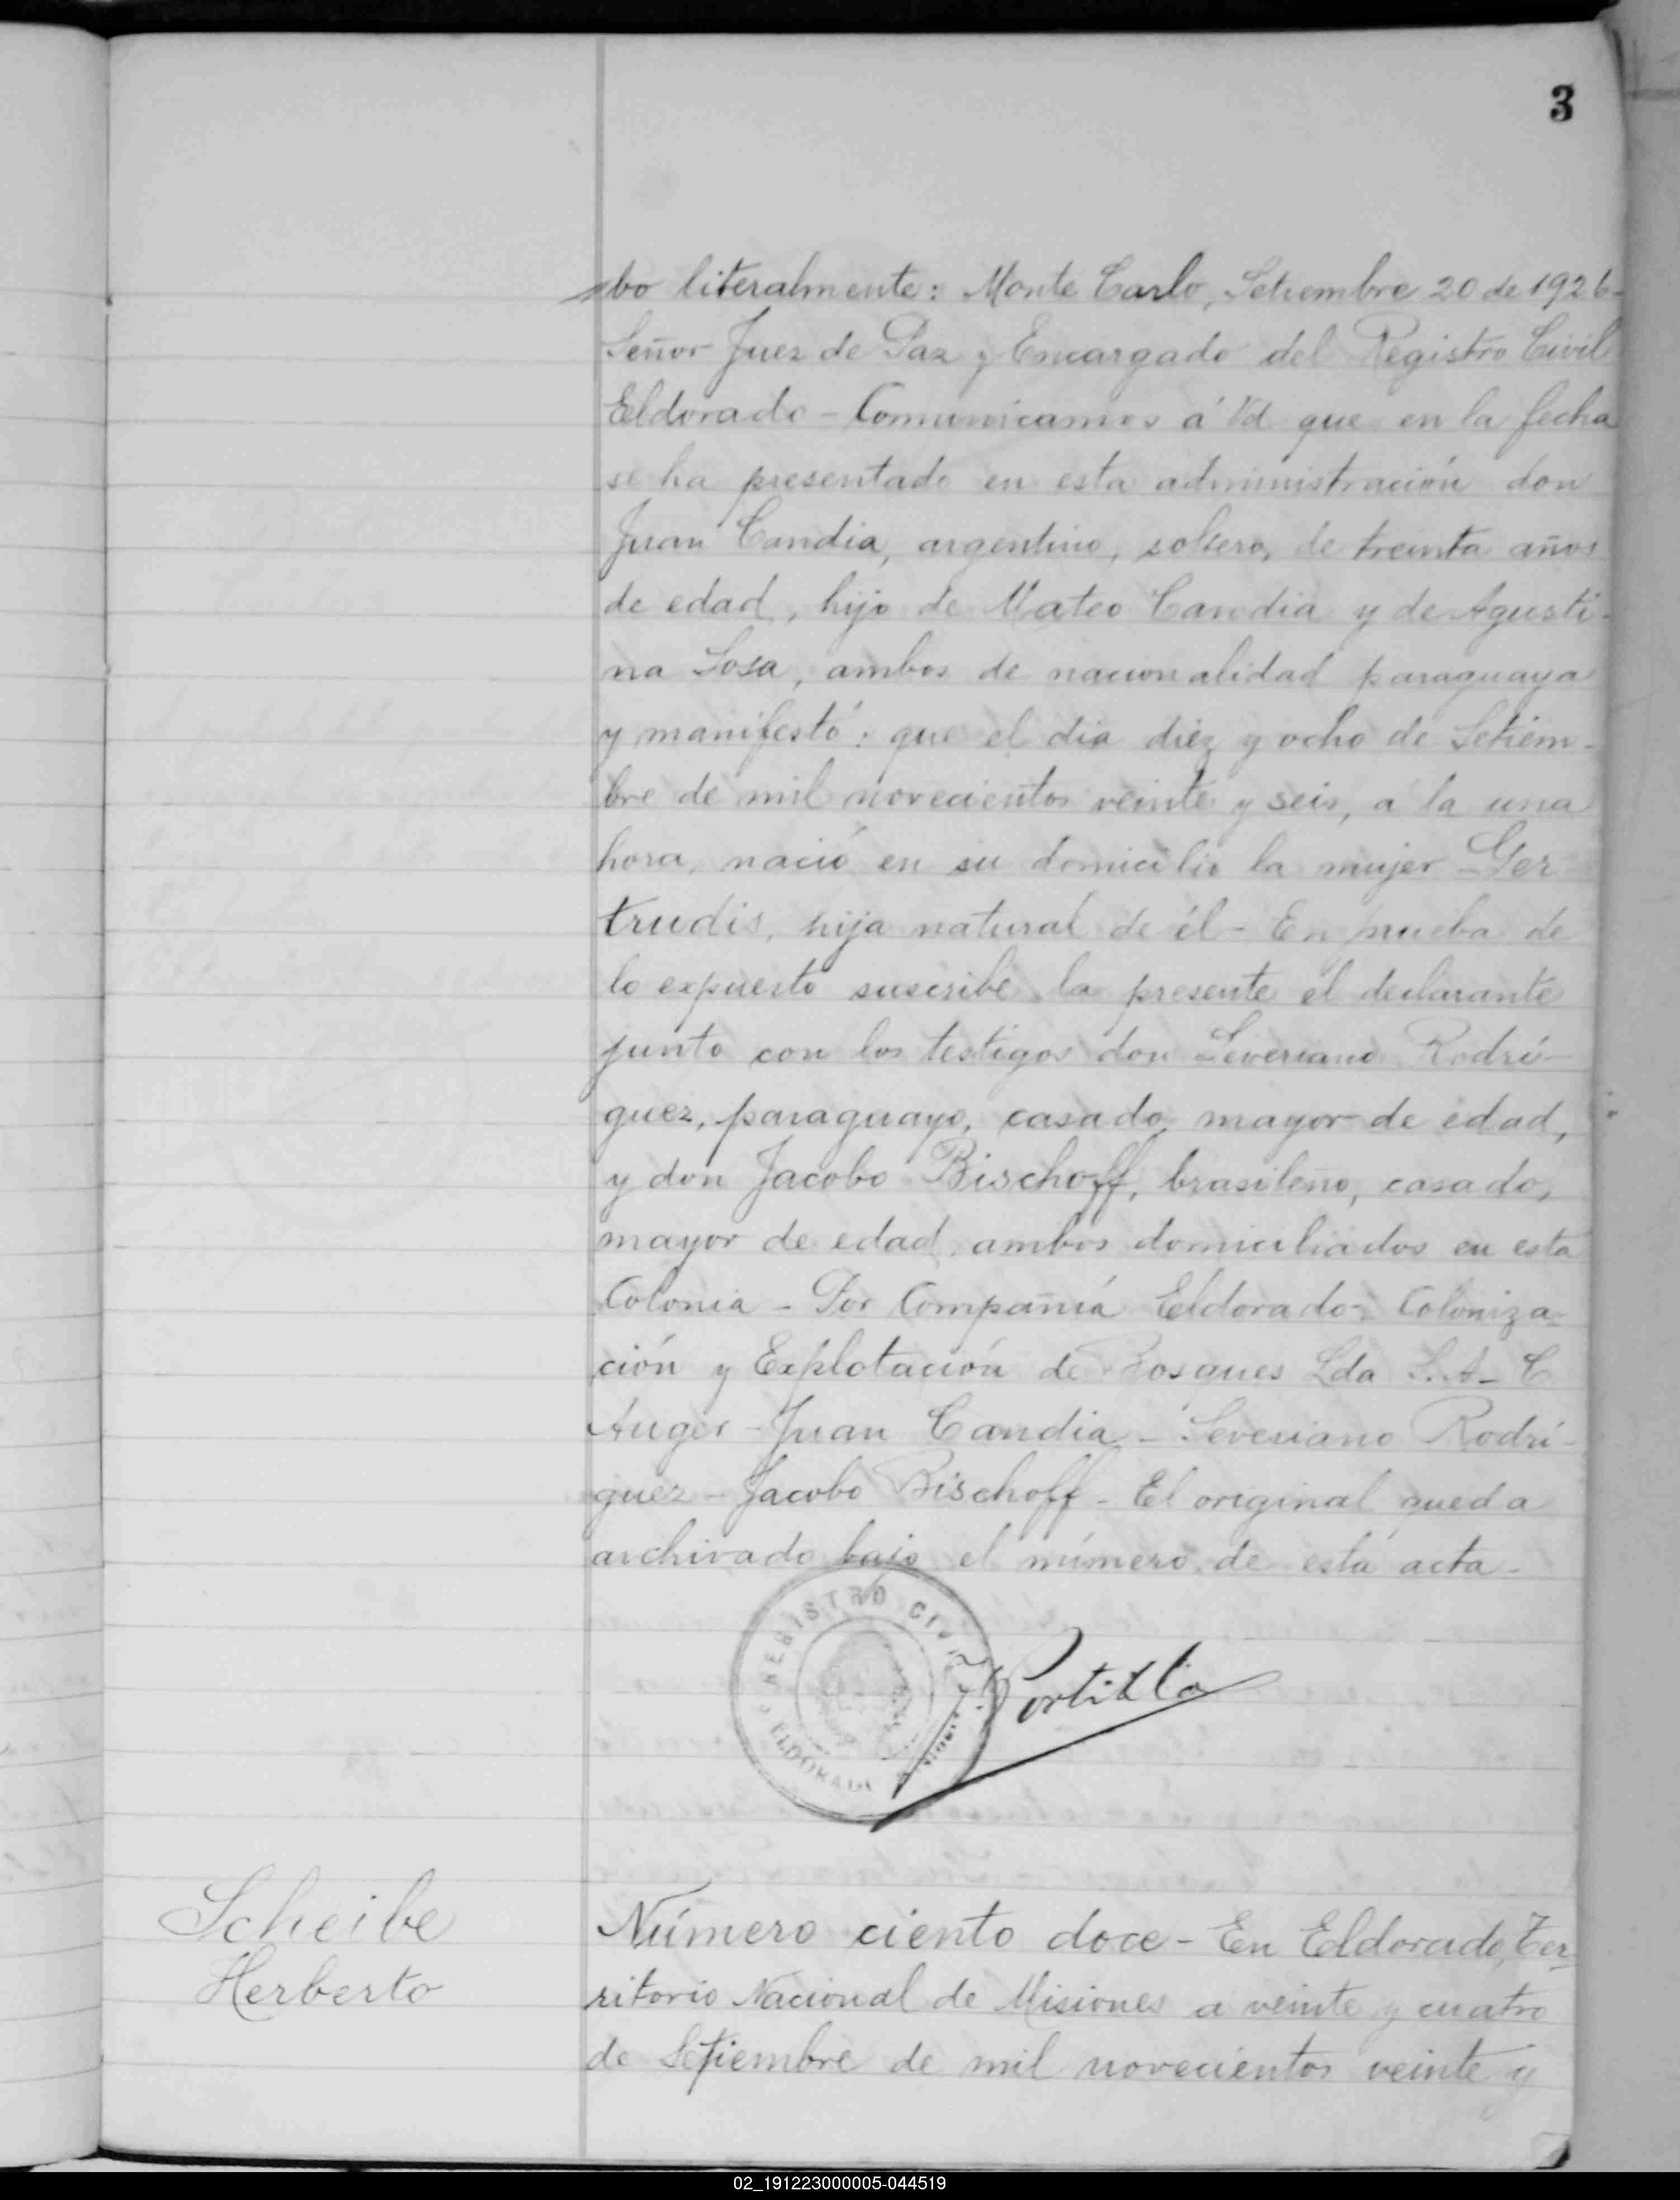 3
bo literalmente: Monte Carlo, Setiembre 20 de 1926-
Señor Juez de Paz y Encargado del Registro Civil
Eldorado - Comunicamos á Vd que en la fecha
se ha presentado en esta administración don
Juan Candia, argentino, soltero, de treinta años
de edad, hijo de Mateo Candia y de Agusti-
na Sosa, ambos de nacionalidad paraguaya
y manifestó: que el dia diez y ocho de Setiem-
bre de mil novecientos veinte y seis, a la una
hora, nació en su domicilio la mujer Ger
trudis, hija natural de él - En prueba de
lo expuesto suscribe la presente el declarante
junto con los testigos don Severiano Rodrí-
guez, paraguayo, casado, mayor de edad,
y don Jacobo Bischoff, brasileño, casado,
mayor de edad, ambos domiciliados en esta
Colonia - Por Compañía Eldorado, Coloniza-
ción y Explotación de Bosques Lda S.A- C
Auger - Juan Candia - Severiano Rodrí-
guez - Jacobo Bischoff - El original queda
archivado bajo el número de esta acta -
REGISTRO CIVIL
ELDORADO
Portillo
Scheibe
Herberto
Número ciento doce - En Eldorado, Ter
ritorio Nacional de Misiones a veinte y cuatro
de Setiembre de mil novecientos veinte y
02_191223000005-044519